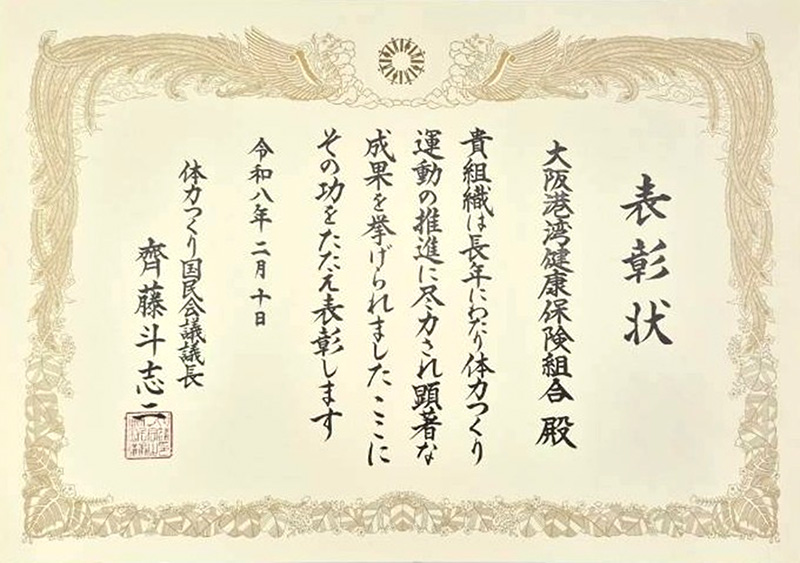 表彰状
大阪港湾健康保険組合 殿
貴組織は長年にわたり体力つくり
運動の推進に尽力され顕著な
成果を挙げられましたここに
その功をたたえ表彰します
令和八年二月十日
体力つくり国民会議議長
齊藤斗志二